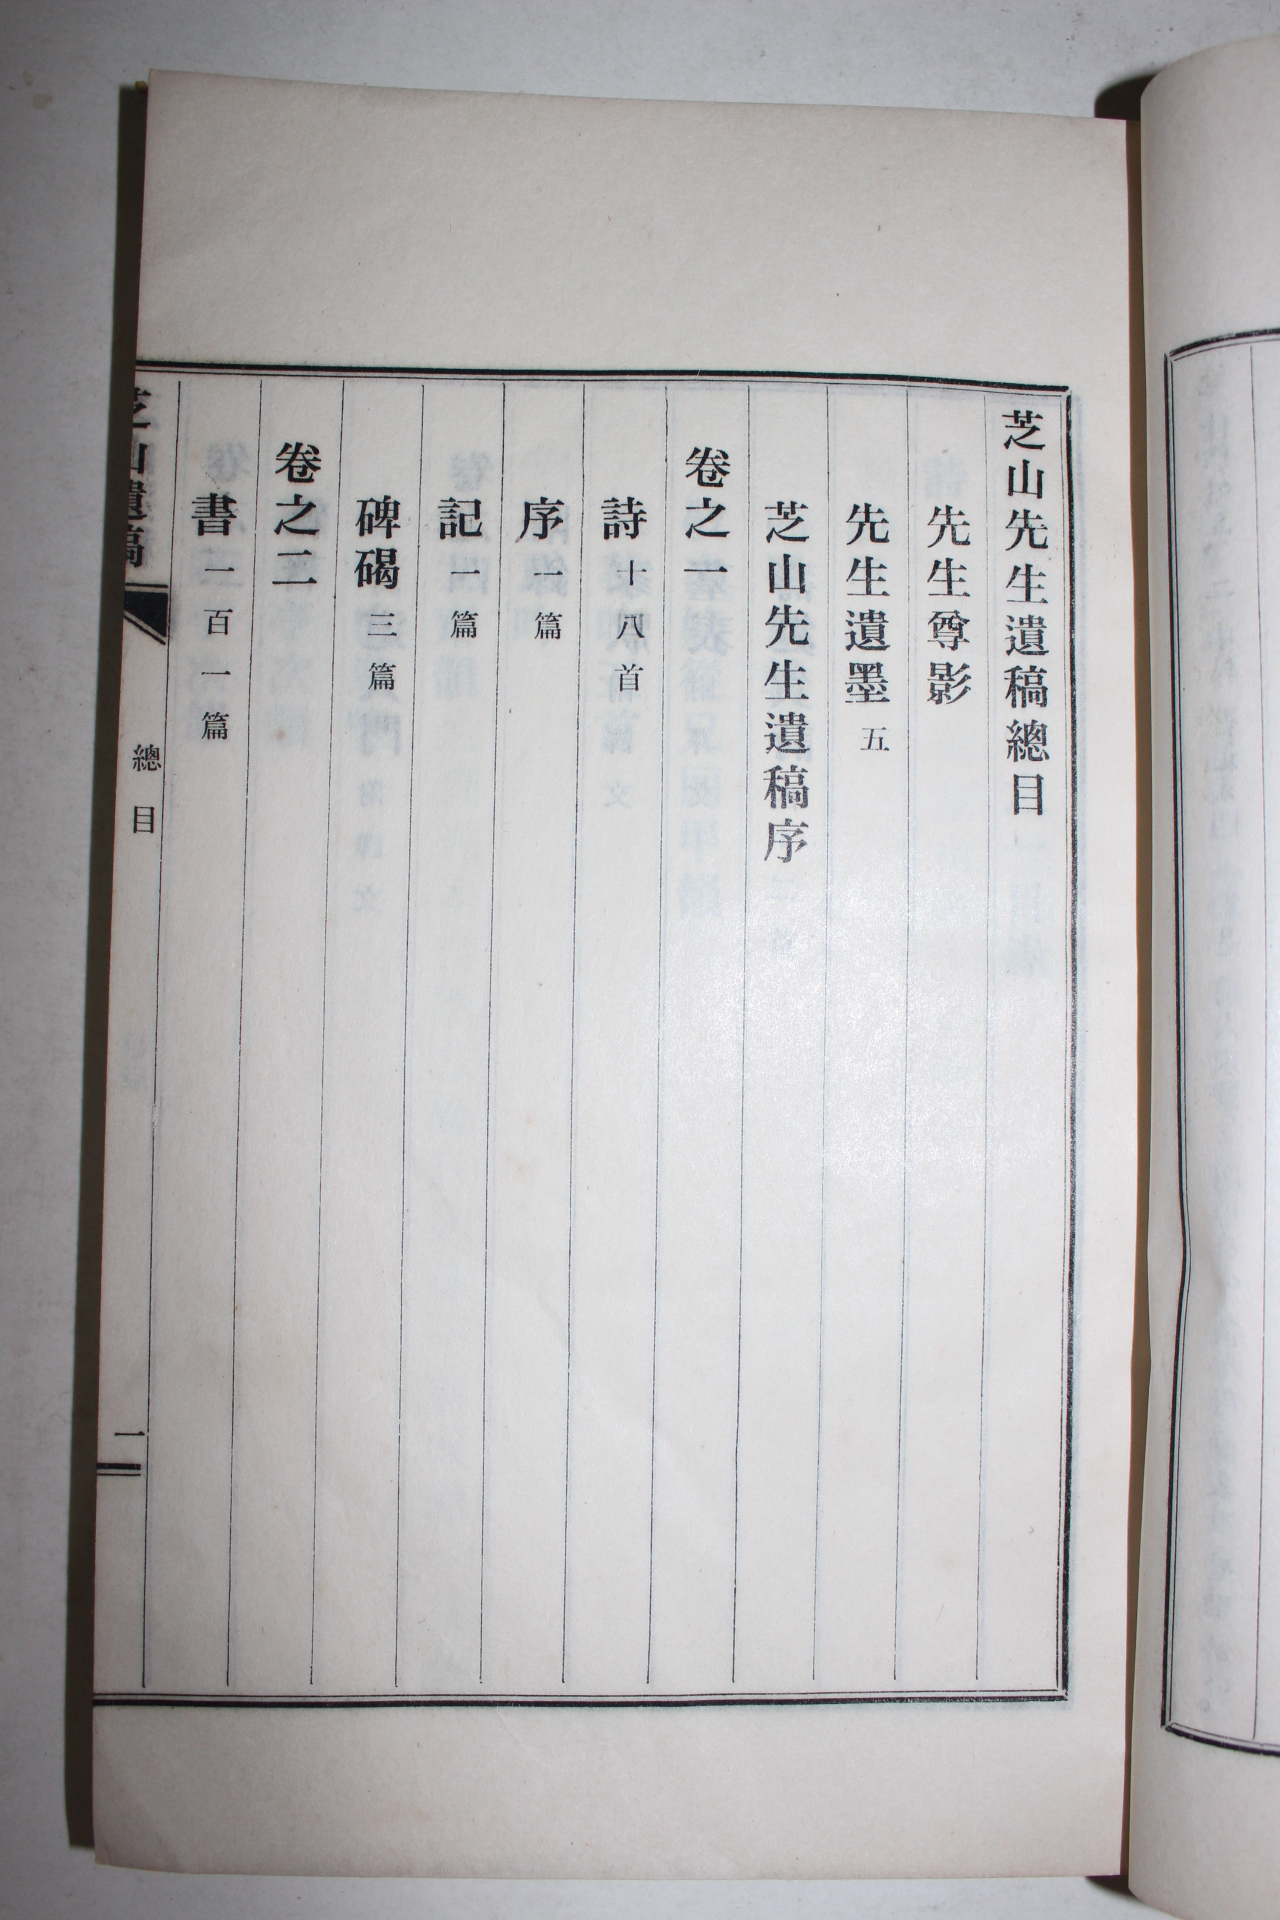 芝山先生遺稿總目
先生尊影
先生遺墨 五
芝山先生遺稿序
卷之一
詩 十八首
序 一篇
記 一篇
碑碣 三篇
卷之二
書 一百一篇
芝山遺稿
總目
一